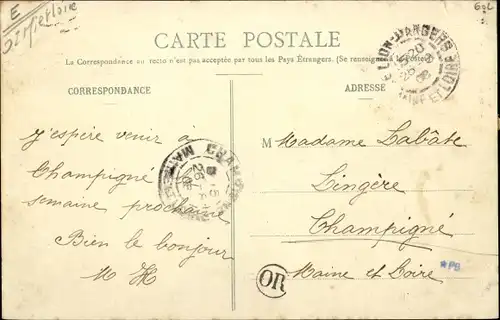 E
CARTE POSTALE
La Correspondance au recto n'est pas acceptée par tous les Pays Étrangers. (Se renseigner à la Poste)
CORRESPONDANCE
ADRESSE
J'espère venir à
Champigné
semaine prochaine
Bien le bonjour
M
M Madame Labâte
Lingère
Champigné
Maine et Loire
LE LION-D'ANGERS
MAINE ET LOIRE
OR
*PB